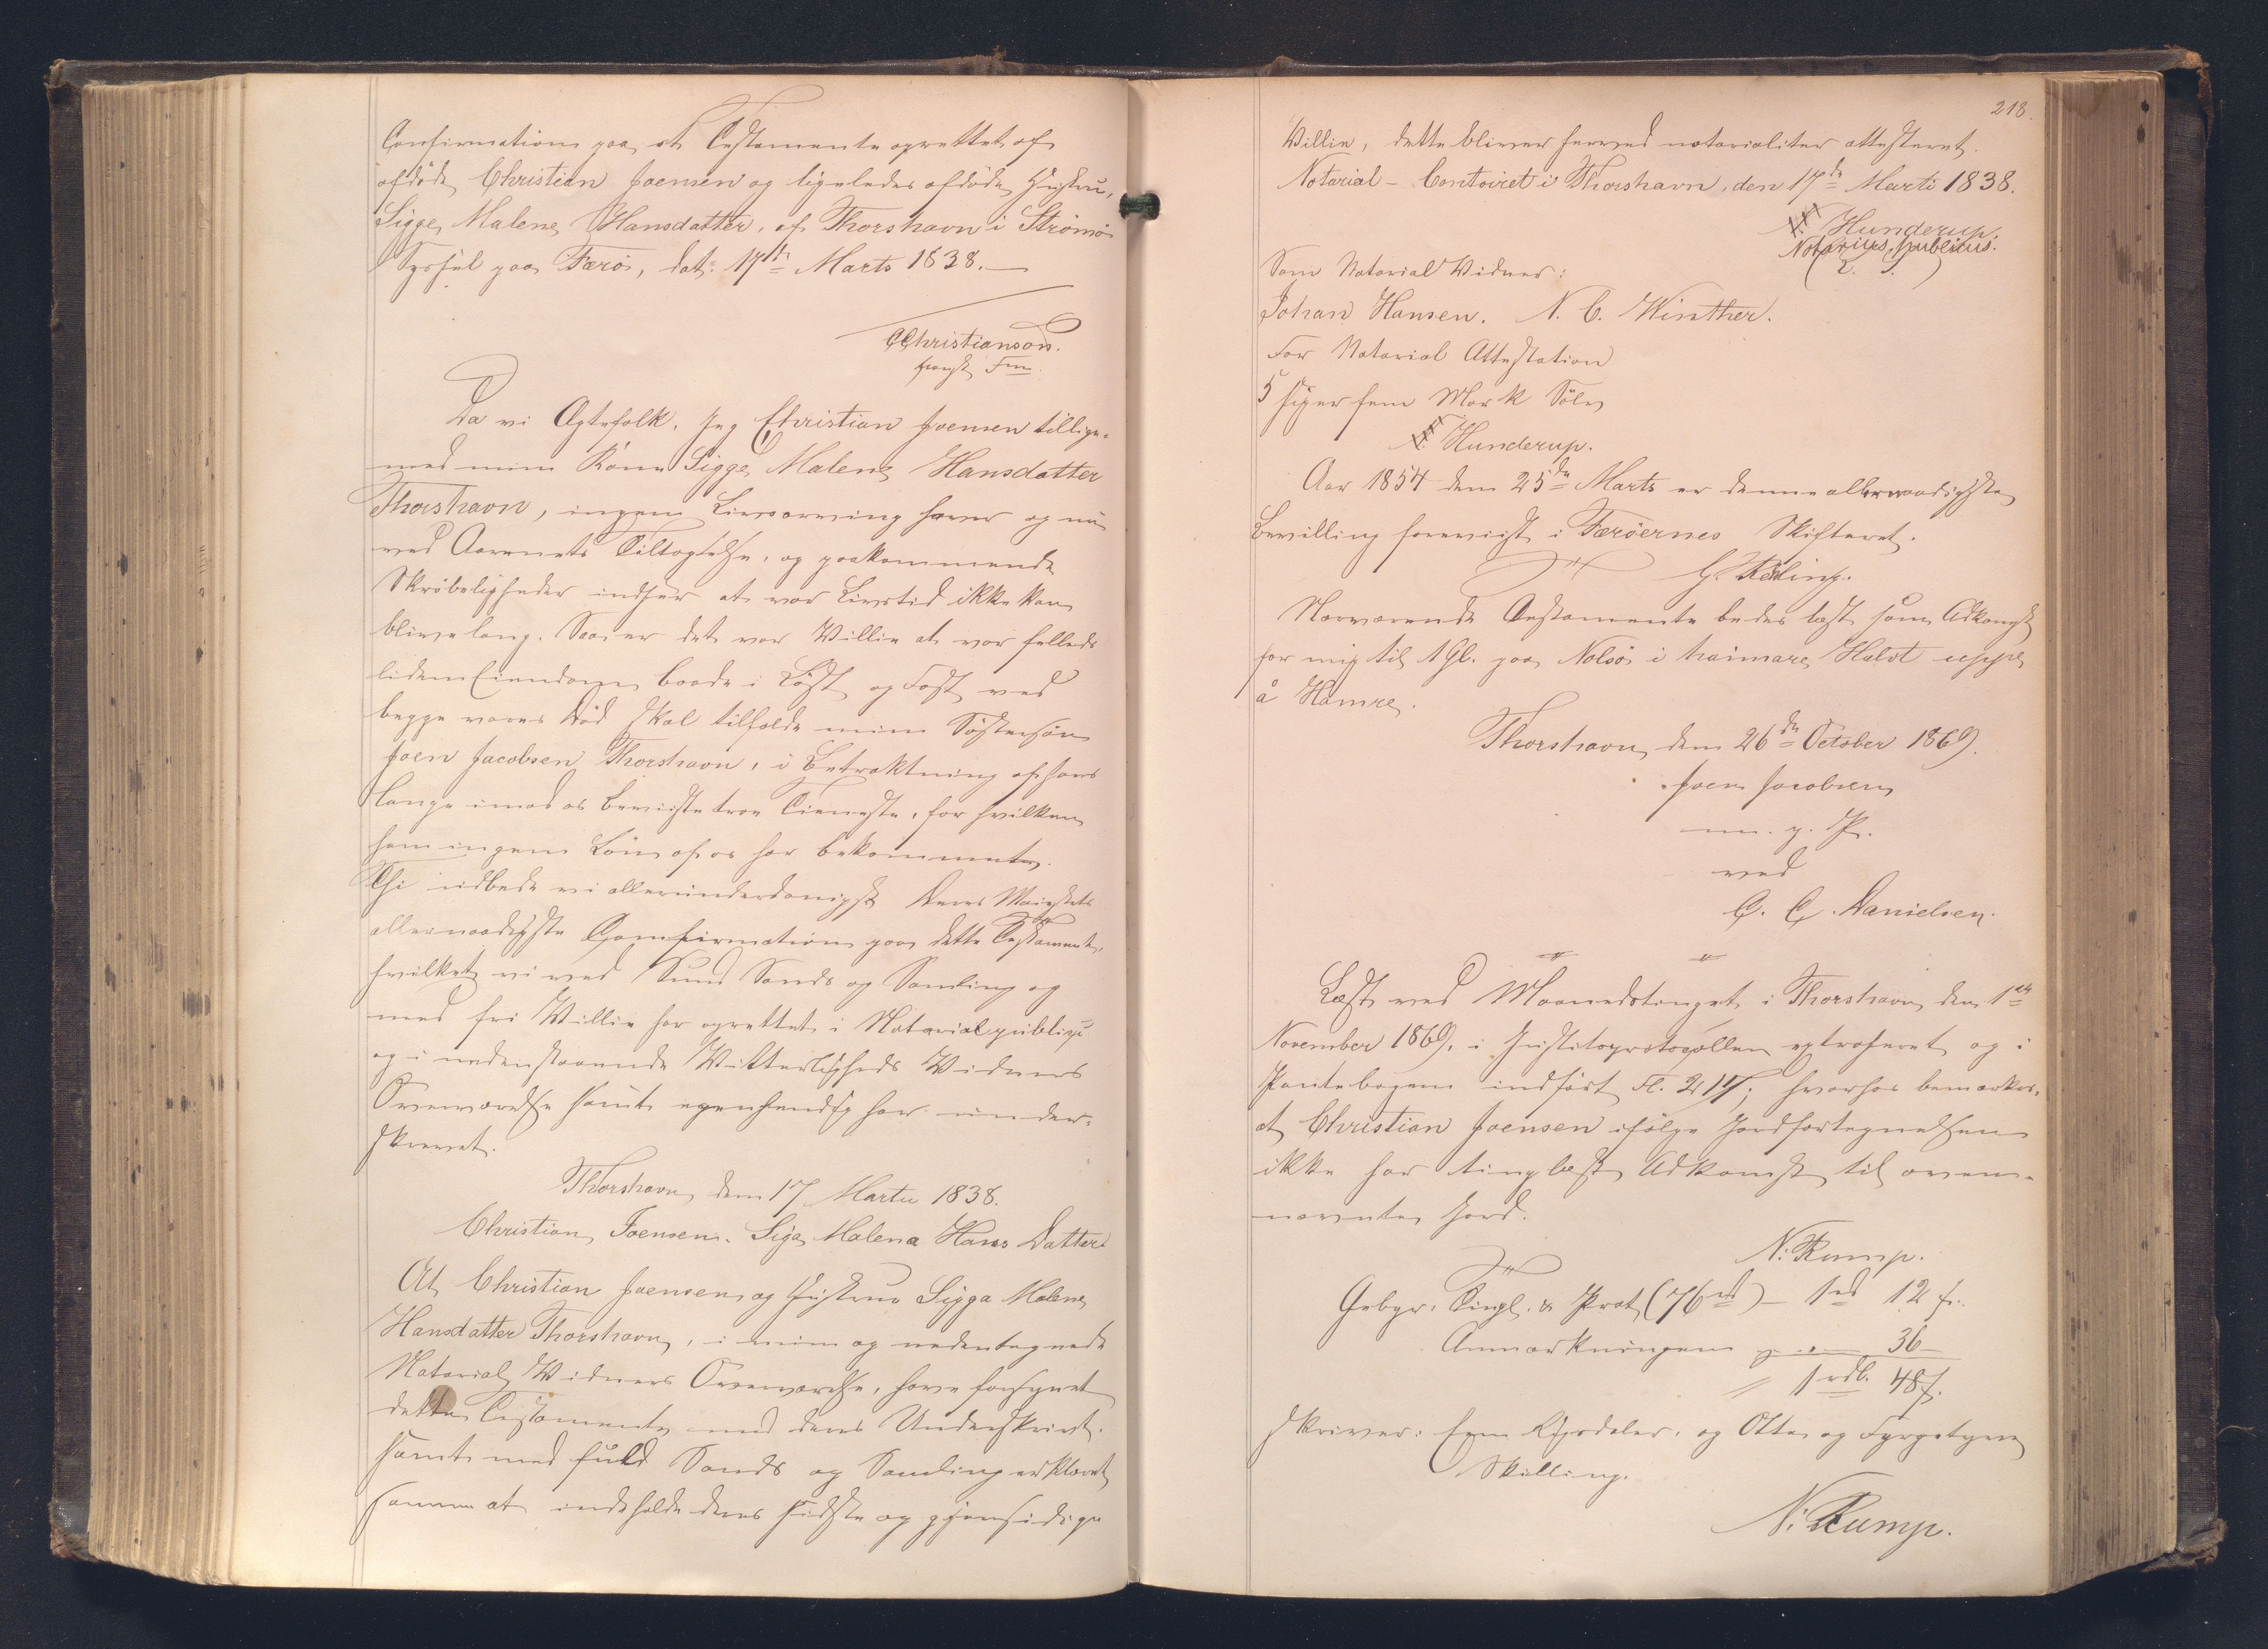 Confirmation paa et Testamente oprettet af
afdøde Christian Joensen og ligeledes afdøde Hustru,
Sigge Malene Hansdatter, af Thorshavn i Strömö
Syssel paa Færö, dat: 17de Marts 1838.
CChristianson.
Da vi Ægtefolk, Jeg Christian Joensen tillige-
med min Kone Sigge Malene Hansdatter
Thorshavn, ingen Livsarving haver og nu
ved Aarenets Tiltagelse, og paakommende
Skröbeligheder indseer at vor Livstid ikke kan
blive lang. Saa er det vor Willie at vor fælleds
liden Eiendom baade i Löst og Fast ved
begge vores Död skal tilfalde min Söstersön
Joen Jacobsen Thorshavn, i Betraktning af hans
lange imod os beviiste troe Tieneste, for hvilken
han ingen Lön af os har bekommet.
Thi udbede vi allerunderdanigst Deres Maiestets
allernaadigste Confirmation paa dette Testamente,
hvilket vi ved Sund Sands og Samling og
med fri Willie har oprettet i Notarialpubliqu
og i nedenstaaende Witterligheds Widners
Overværelse samt egenhendig har under-
skrevet.
Thorshavn den 17 Martii 1838.
Christian Joensen. Siga Malena Hans Datter
At Christian Joensen og Hustrue Sigga Malene
Hansdatter Thorshavn, i min og undertegnede
Notarial Widners Overværelse, have forsynet
dette Testamente med deres Underskrivt.
samt med fuld Sands og Samling erklæret
samme at indeholde deres sidste og gjensidige
218.
Willie, dette bliver herved notarialiter attesteret.
Notarial-Contoiret i Thorshavn, den 17de Marti 1838.
Hunderup.
Notarius publicus.
(L. S.)
Som Notarial Widner:
Johan Hansen. N. C. Winther.
For Notarial Attestation
5 siger fem Mark Sölv
Hunderup.
Aar 1854 den 25de Marts er denne allernaadigste
Bevilling foreviist i Færöernes Skifteret.
Nærværende Testamente bedes læst som Adkomst
for mig til 1 Gl. paa Nolsö i haimare Halvt uppe
å Hamre.
Thorshavn den 26de October 1869.
Joen Jacobsen
m. p. P.
ved
C. C. Danielsen.
Læst ved Maanedstinget i Thorshavn den 1ste
November 1869, i Justitsprotocollen extraheret og i
Pantebogen indfört Fl. 217; hvorhos bemærkes,
at Christian Joensen ifølge Jordfortegnelsen
ikke har tinglæst Adkomst til oven-
nævnte Jord.
N: Rump.
Gebyr: Tingl. & Prot (76rd) - 1rd 12 s.
Anmærkningen " - 36 -
1 rdl. 48 s.
skriver: Een Rigsdaler, og Otte og Fyrgetyve
Skilling.
N: Rump.